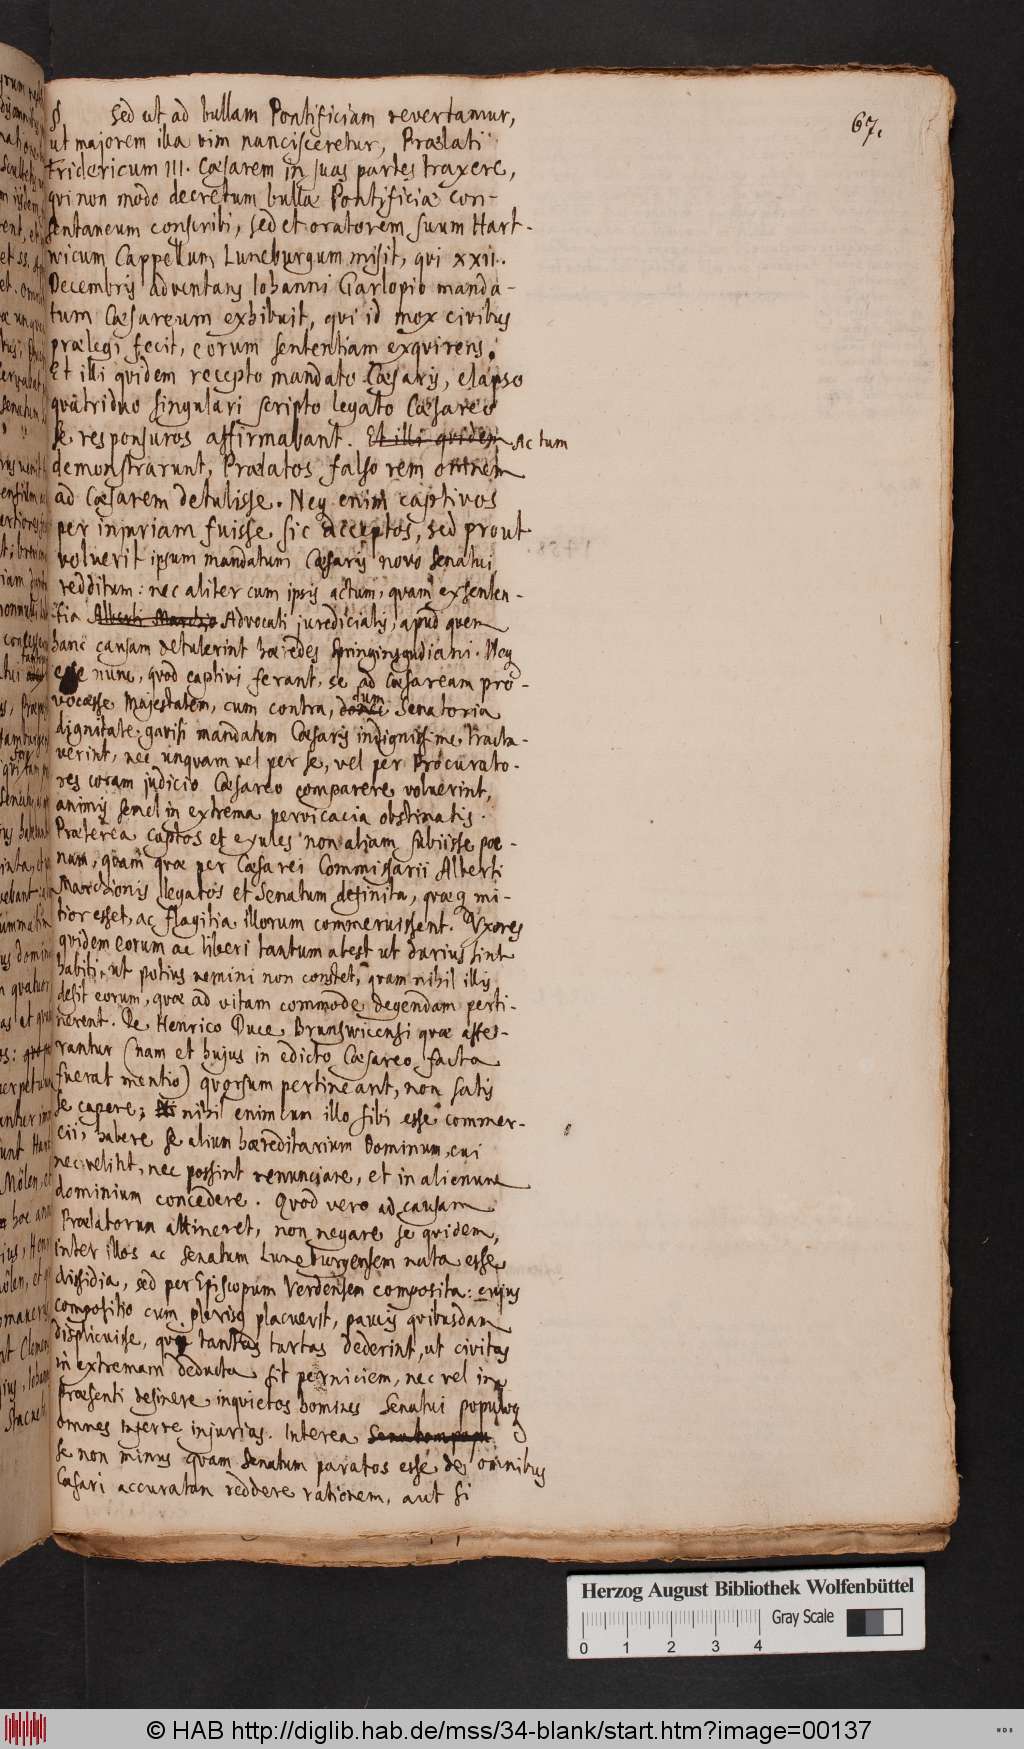 67.
§. Sed ut ad bullam Pontificiam revertamur,
ut majorem illa vim nancisceretur, Prælati
Fridericum III. Cæsarem in suas partes traxere,
qui non modo decretum bullæ Pontificiæ con-
sentaneum conscribi, sed et oratorem suum Hart-
wicum Cappellum Luneburgum misit, qui XXII.
Decembris adventans Iohanni Garlopio manda-
tum Cæsareum exhibuit, qui id mox civibus
prælegi fecit, eorum sententiam exquirens.
Et illi quidem recepto mandato Cæsaris, elapso
quatriduo singulari scripto legato Cæsareo
se responsuros affirmabant. Et illi quidem Actum
demonstrarunt, Prælatos falso rem omnem
ad Cæsarem detulisse. Neq enim captivos
per injuriam fuisse sic acceptos, sed prout
voluerit ipsum mandatum Cæsaris novo Senatui
redditum: nec aliter cum ipsis actum, quam ex senten-
tia Alberti Marchio Advocati juredicialis, apud quem
hanc causam detulerint hæredes Springinsgudiani. Neq
esse nunc, quod captivi ferant, se ad Cæsaream pro-
vocasse Majestatem, cum contra, tum Senatoria
dignitate gavisi mandatum Cæsaris indignissime tracta-
verint, nec unquam vel per se, vel per Procurato-
res coram judicio Cæsareo comparere voluerint,
animis semel in extrema pervicacia obstinatis.
Præterea captos et exules non aliam subiisse poe-
nam, quam quæ per Cæsarei Commissarii Alberti
Marchionis legatos et Senatum definita, quæq mi-
tior esset, ac flagitia illorum commeruissent. Uxores
quidem eorum ac liberi tantum abest ut durius sint
habiti, ut potius nemini non constet, quam nihil illis
desit eorum, quæ ad vitam commode degendam perti-
nerent. De Henrico Duce Brunswicensi quæ affe-
rantur (nam et hujus in edicto Cæsareo facta
fuerat mentio) quorsum pertineant, non satis
se capere; nihil enim cum illo sibi esse commer-
cii, habere se alium hæreditarium Dominum, cui
nec velint, nec possint renunciare, et in alienum
dominium concedere. Quod vero ad causam
Prælatorum attineret, non negare se quidem,
inter illos ac Senatum Luneburgensem nata esse
dissidia, sed per Episcopum Verdensem composita: cujus
compositio cum plerisq placuerit, paucis quibusdam
displicuisse, qui tantas turbas dederint, ut civitas
in extremam deducta sit perniciem, nec vel in
præsenti desinere inquietos homines Senatui populoq
omnes inferre injurias. Interea Senatum popu
se non minus quam Senatum paratos esse de omnibus
Cæsari accuratam reddere rationem, aut si
Herzog August Bibliothek Wolfenbüttel
0 1 2 3 4
Gray Scale
© HAB http://diglib.hab.de/mss/34-blank/start.htm?image=00137